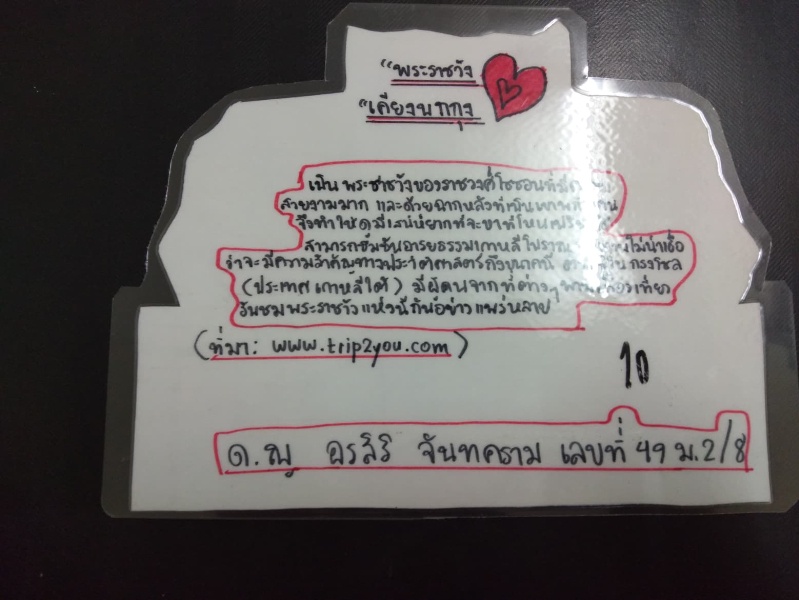 "พระราชวัง
"เคียงบกกุง
เป็น พระราชวังของราชวงศ์โชซอนที่มี
สวยงามมาก และด้วยฉากหลังที่เป็นภาพ
จึงทำให้ดูมีเสน่ห์ยากที่จะหาที่ไหนเปรียบ
สามารถชื่นชมอารยธรรมเกาหลีโบราณ ไม่น่าเชื่อ
ว่าจะมีความสำคัญทางประวัติศาสตร์ถึงขนาดนี้ กรุงโซล
(ประเทศ เกาหลีใต้) มีผู้คนจากที่ต่างๆ พากันมาเที่ยว
วันชมพระราชวัง แห่งนี้กันอย่าง แพร่หลาย
(ที่มา: www.trip2you.com)
10
ด.ญ อรสิริ จันทคราม เลขที่ 49 ม.2/8